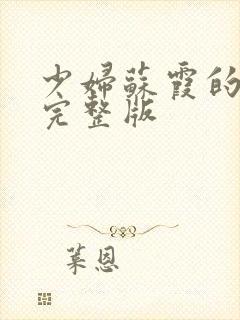 少婦蘇霞的
完整版
葉恩